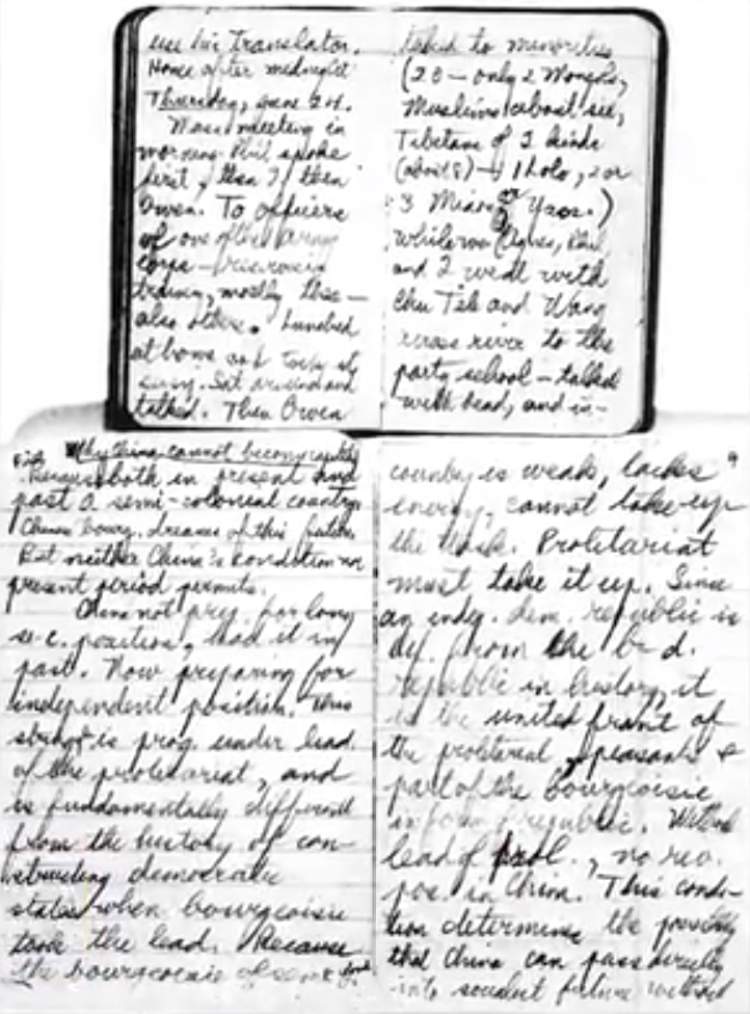 use his translator.
Home after midnight
Thursday, June 24.
Mass meeting in
morning. Phil spoke
first, then I, then
Owen. To officers
of one of the army
corps —
training, mostly these —
also others. Lunched
at home and
Sat around and
talked. Then Owen
talked to minorities
(20 — only 2 Mongols,
Muslims about six,
Tibetans of 2 kinds
(about 8) — 1 Lolo, 2 or
3 Miao or Yaos.)
while we (Agnes, Phil,
and I went with
Chu Teh and Wang
across river to the
party school — talked
with head, and in-
Why China cannot become capitalist
Because both in present and
past a semi-colonial country.
Chinese bourg. dreams of this future.
But neither China's condition nor
present period permits.
China not prep. for long
s-c. position, had it in
past. Now preparing for
independent position. This
struggle is prog. under lead.
of the proletariat, and
is fundamentally different
from the history of con-
structing democratic
states when bourgeoisie
took the lead. Because
the bourgeoisie of semi
country is weak, lacks
energy, cannot take up
the task. Proletariat
must take it up. Since
an indep. dem. republic is
dif. from the b. d.
republic in history, it
is the united front of
the proletariat, peasants &
part of the bourgeoisie
in form of republic. Without
lead of prol., no rev.
pos. in China. This condi-
tion determines the possibility
that China can pass directly
into socialist future without